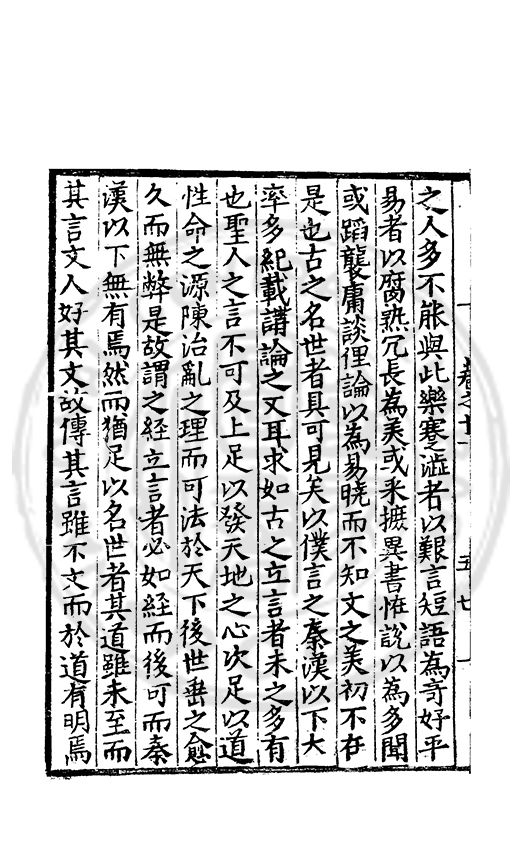 之人多不能與此樂蹇澁者以艱言短語為奇好平
易者以腐熟冗長為美或采摭異書恠說以為多聞
或蹈襲庸談俚論以為易曉而不知文之美初不在
是也古之名世者具可見矣以僕言之秦漢以下大
率多紀載講論之文耳求如古之立言者未之多有
也聖人之言不可及上足以發天地之心次足以道
性命之源陳治亂之理而可法於天下後世垂之愈
久而無弊是故謂之經立言者必如經而後可而秦
漢以下無有焉然而猶足以名世者其道雖未至而
其言文人好其文故傳其言雖不文而於道有明焉